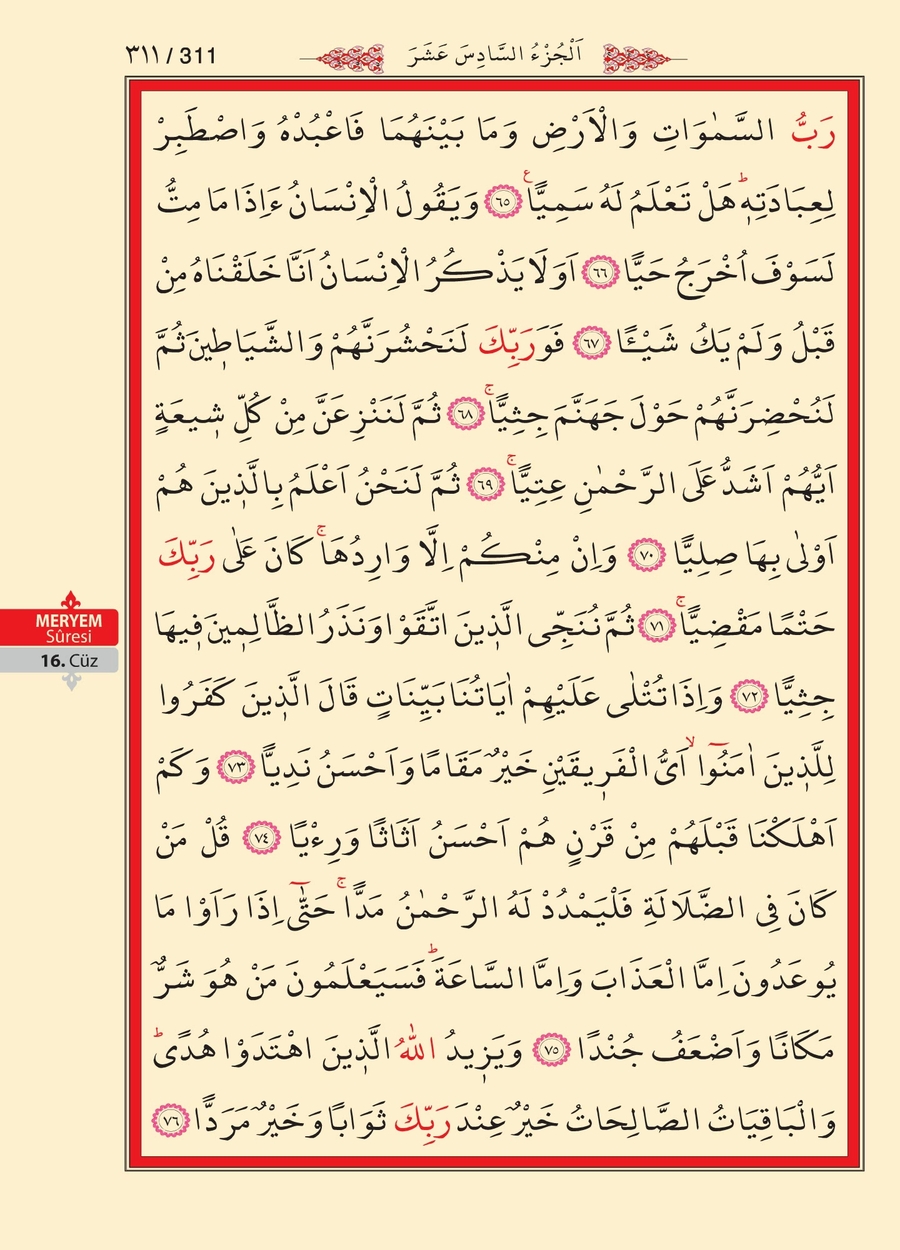 ٣١١ / 311
اَلْجُزْءُ السَّادِسَ عَشَرَ
رَبُّ السَّمٰوَاتِ وَالْاَرْضِ وَمَا بَيْنَهُمَا فَاعْبُدْهُ وَاصْطَبِرْ
لِعِبَادَتِهٖۜ هَلْ تَعْلَمُ لَهُ سَمِيًّاࣖ ﴿٦٥﴾ وَيَقُولُ الْاِنْسَانُ ءَاِذَا مَا مِتُّ
لَسَوْفَ اُخْرَجُ حَيًّا ﴿٦٦﴾ اَوَلَا يَذْكُرُ الْاِنْسَانُ اَنَّا خَلَقْنَاهُ مِنْ
قَبْلُ وَلَمْ يَكُ شَيْـًٔا ﴿٦٧﴾ فَوَرَبِّكَ لَنَحْشُرَنَّهُمْ وَالشَّيَاطٖينَ ثُمَّ
لَنُحْضِرَنَّهُمْ حَوْلَ جَهَنَّمَ جِثِيًّاۚ ﴿٦٨﴾ ثُمَّ لَنَنْزِعَنَّ مِنْ كُلِّ شٖيعَةٍ
اَيُّهُمْ اَشَدُّ عَلَى الرَّحْمٰنِ عِتِيًّاۚ ﴿٦٩﴾ ثُمَّ لَنَحْنُ اَعْلَمُ بِالَّذٖينَ هُمْ
اَوْلٰى بِهَا صِلِيًّا ﴿٧٠﴾ وَاِنْ مِنْكُمْ اِلَّا وَارِدُهَاۚ كَانَ عَلٰى رَبِّكَ
حَتْمًا مَقْضِيًّاۚ ﴿٧١﴾ ثُمَّ نُنَجِّى الَّذٖينَ اتَّقَوْا وَنَذَرُ الظَّالِمٖينَ فٖيهَا
جِثِيًّا ﴿٧٢﴾ وَاِذَا تُتْلٰى عَلَيْهِمْ اٰيَاتُنَا بَيِّنَاتٍ قَالَ الَّذٖينَ كَفَرُوا
لِلَّذٖينَ اٰمَنُٓواۙ اَىُّ الْفَرٖيقَيْنِ خَيْرٌ مَقَامًا وَاَحْسَنُ نَدِيًّا ﴿٧٣﴾ وَكَمْ
اَهْلَكْنَا قَبْلَهُمْ مِنْ قَرْنٍ هُمْ اَحْسَنُ اَثَاثًا وَرِءْيًا ﴿٧٤﴾ قُلْ مَنْ
كَانَ فِى الضَّلَالَةِ فَلْيَمْدُدْ لَهُ الرَّحْمٰنُ مَدًّاۚ حَتّٰٓى اِذَا رَاَوْا مَا
يُوعَدُونَ اِمَّا الْعَذَابَ وَاِمَّا السَّاعَةَۜ فَسَيَعْلَمُونَ مَنْ هُوَ شَرٌّ
مَكَانًا وَاَضْعَفُ جُنْدًا ﴿٧٥﴾ وَيَزٖيدُ اللّٰهُ الَّذٖينَ اهْتَدَوْا هُدًىۜ
وَالْبَاقِيَاتُ الصَّالِحَاتُ خَيْرٌ عِنْدَ رَبِّكَ ثَوَابًا وَخَيْرٌ مَرَدًّا ﴿٧٦﴾
MERYEM
Sûresi
16. Cüz